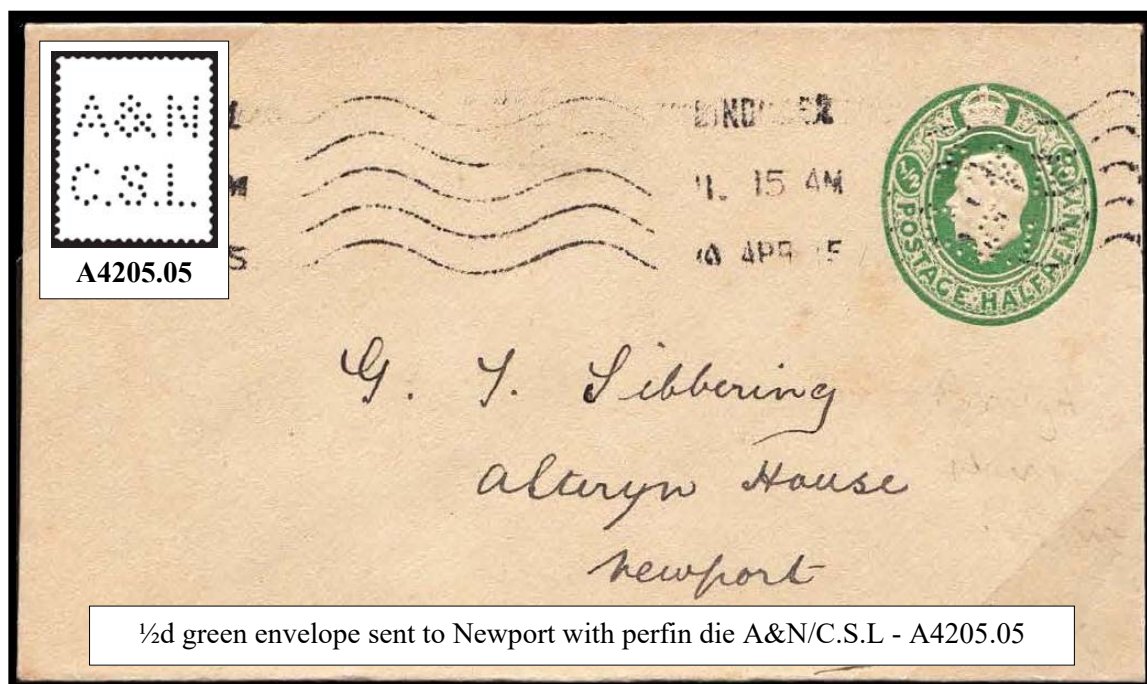 A&N
C.S.L.
A4205.05
15 AM
APR
½
POSTAGE HALFPENNY
G. T. Sibbering
Alteryn House
Newport
½d green envelope sent to Newport with perfin die A&N/C.S.L - A4205.05